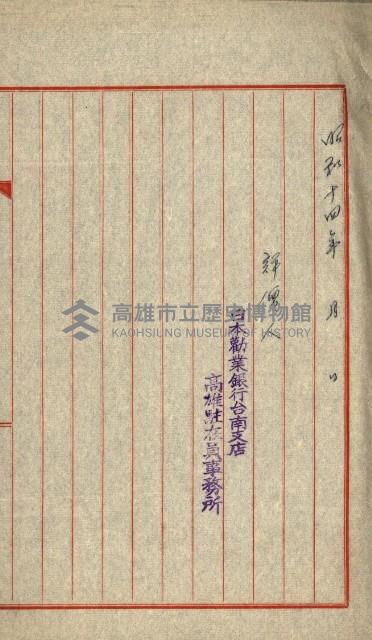 昭和十四年 月 日
評價人
日本勸業銀行台南支店
高雄駐在員事務所
高雄市立歷史博物館
KAOHSIUNG MUSEUM OF HISTORY